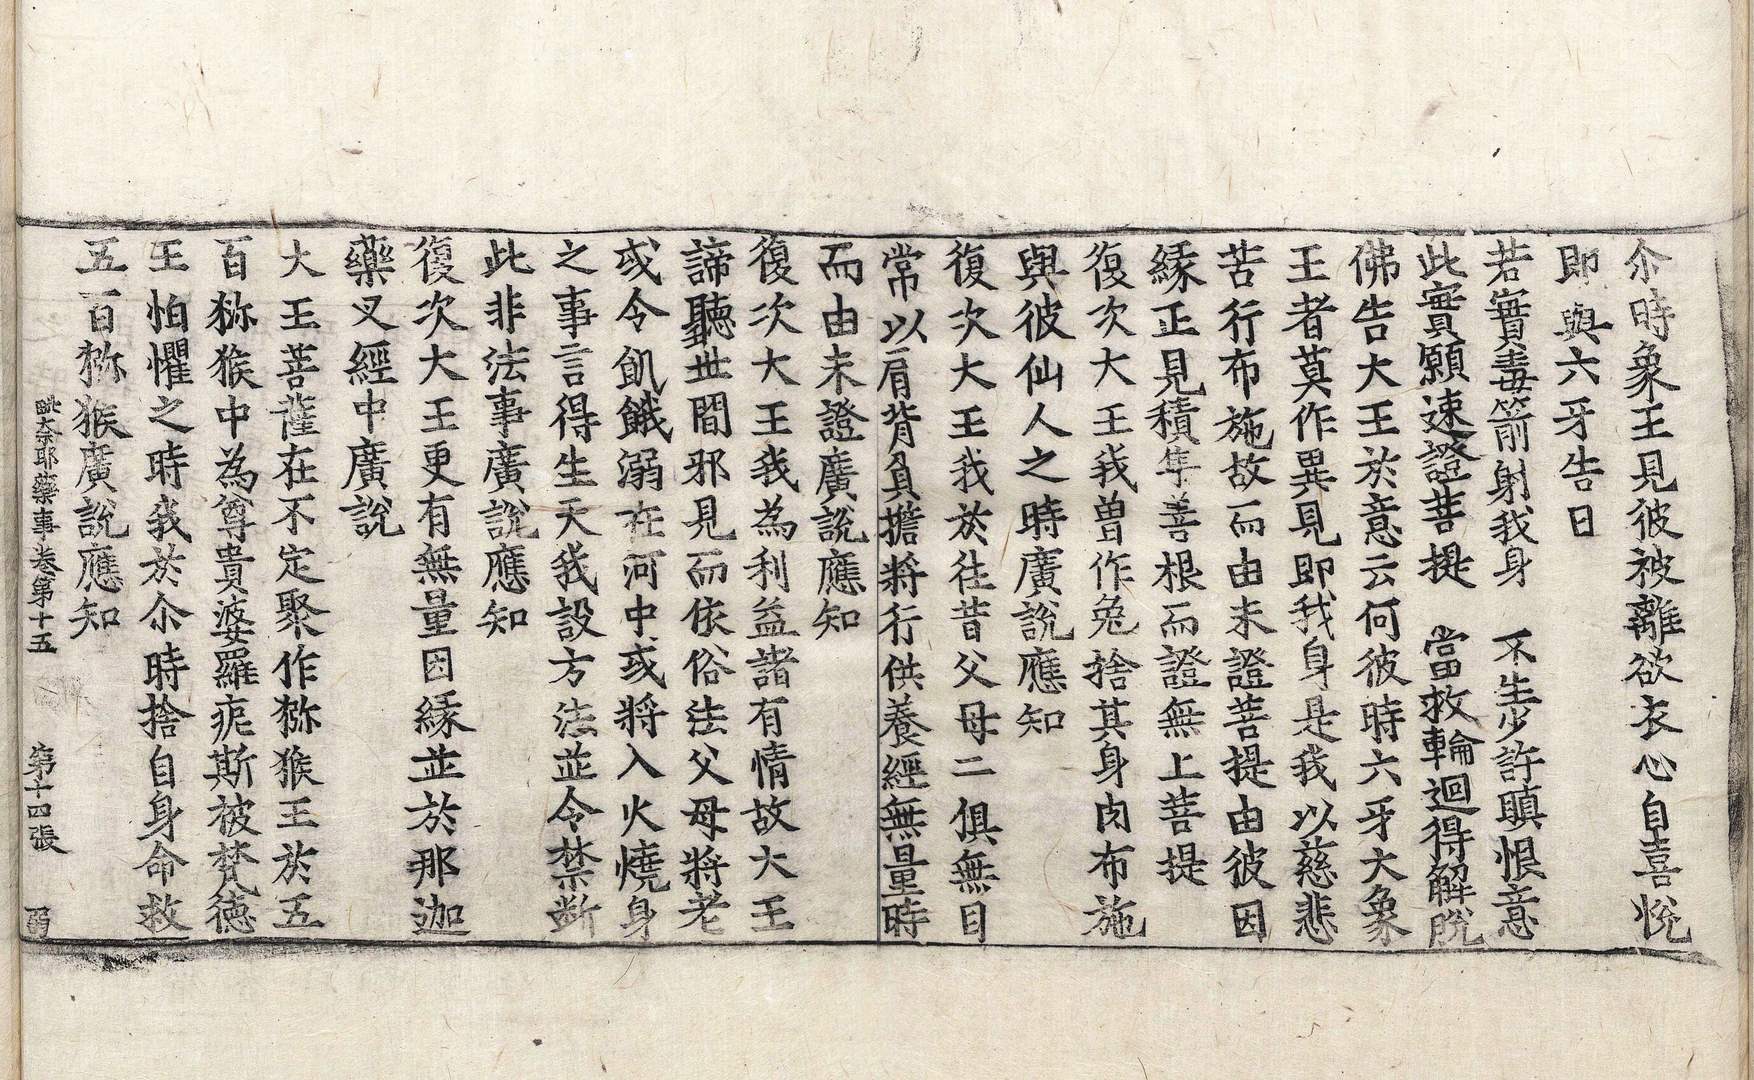 尒時象王見彼被離欲衣心自喜悅
即與六牙告曰
若實毒箭射我身　不生少許瞋恨意
此實願速證菩提　當救輪迴得解脫
佛告大王於意云何彼時六牙大象
王者莫作異見即我身是我以慈悲
苦行布施故而由未證菩提由彼因
緣正見積集善根而證無上菩提
復次大王我曾作兔捨其身肉布施
與彼仙人之時廣說應知
復次大王我於往昔父母二俱無目
常以肩背負擔將行供養經無量時
而由未證廣說應知
復次大王我為利益諸有情故大王
諦聽世間邪見而依俗法父母將老
或令飢餓溺在河中或將入火燒身
之事言得生天我設方法並令禁斷
此非法事廣說應知
復次大王更有無量因緣並於那迦
藥叉經中廣說
大王菩薩在不定聚作獼猴王於五
百獼猴中為尊貴婆羅痆斯被梵德
王怕懼之時我於尒時捨自身命救
五百獼猴廣說應知
毗奈耶藥事卷第十五　第十四張